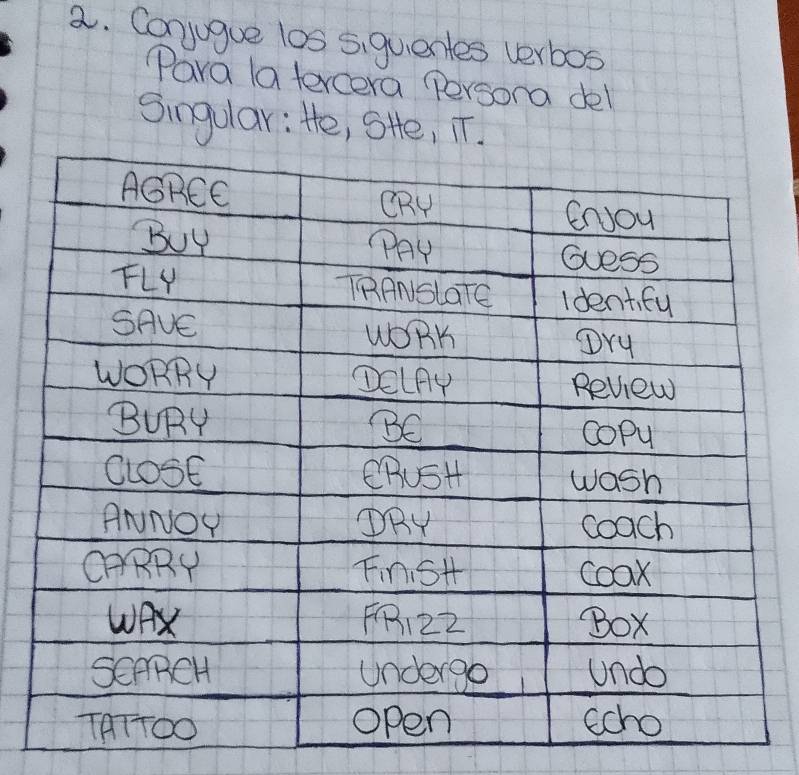 2. Conjugue los siguientes verbos
Para la tercera Persona del
Singular: He, SHe, iT.
AGREE CRY Enjoy
BUY PAY Guess
FLY TRANSLATE Identify
SAVE WORK Dry
WORRY DELAY Review
BURY BE copy
CLOSE CRUSH wash
ANNOY DRY coach
CARRY FiniSH coax
WAX FRIZZ BOX
SEARCH undergo undo
TATTOO open echo